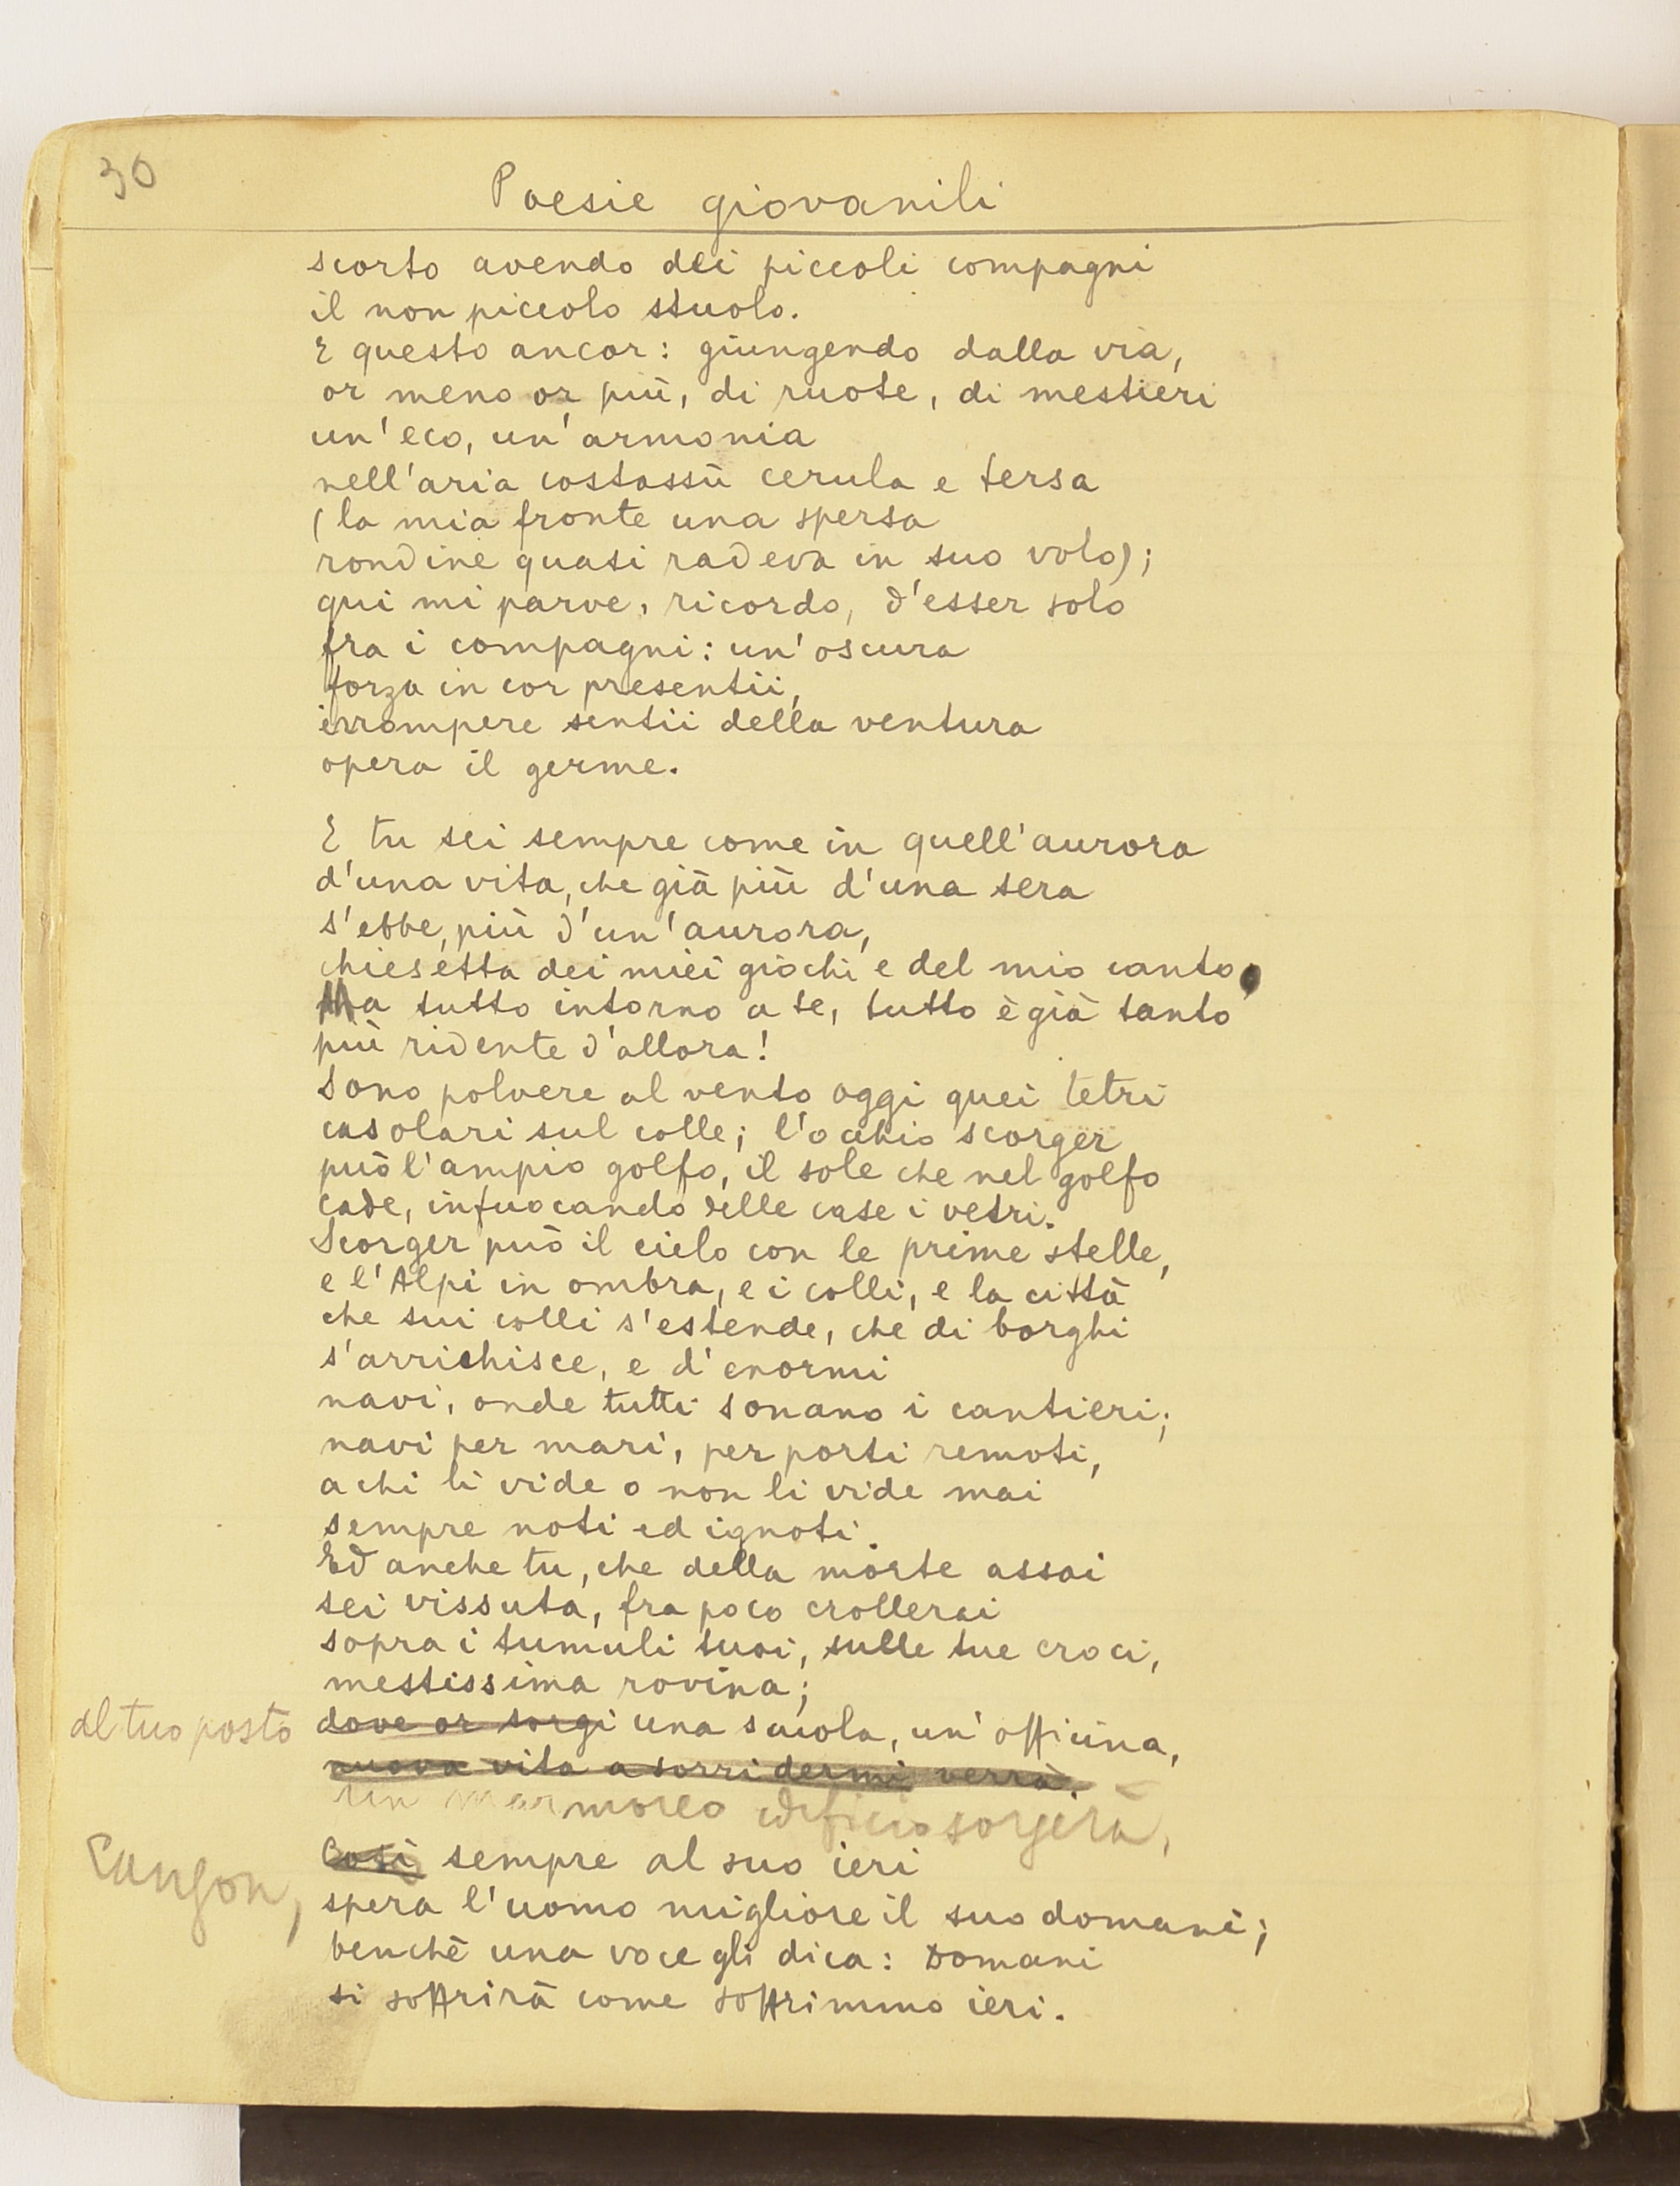 30
Poesie giovanili
scorto avendo dei piccoli compagni
il non piccolo stuolo.
E questo ancor: giungendo dalla via,
or meno or più, di ruote, di mestieri
un'eco, un'armonia
nell'aria costassù cerula e tersa
(la mia fronte una spersa
rondine quasi radeva in suo volo);
qui mi parve, ricordo, d'esser solo
fra i compagni: un'oscura
forza in cor presentii,
irrompere sentii della ventura
opera il germe.
E tu sei sempre come in quell'aurora
d'una vita, che già più d'una sera
s'ebbe, più d'un'aurora,
chiesetta dei miei giochi e del mio canto,
Ma tutto intorno a te, tutto è già tanto
più ridente d'allora!
Sono polvere al vento oggi quei tetri
casolari sul colle; l'occhio scorger
può l'ampio golfo, il sole che nel golfo
cade, infuocando delle case i vetri.
Scorger può il cielo con le prime stelle,
e l'Alpi in ombra, e i colli, e la città
che sui colli s'estende, che di borghi
s'arrichisce, e d'enormi
navi, onde tutti sonano i cantieri;
navi per mari, per porti remoti,
a chi li vide o non li vide mai
sempre noti ed ignoti.
Ed anche tu, che della morte assai
sei vissuta, fra poco crollerai
sopra i tumuli tuoi, sulle tue croci,
mestissima rovina;
al tuo posto dove or sorgi una scuola, un'officina,
nuova vita a sorridermi verrà.
un marmoreo edificio sorgerà,
Così sempre al suo ieri
spera l'uomo migliore il suo domani;
benchè una voce gli dica: Domani
si soffrirà come soffrimmo ieri.